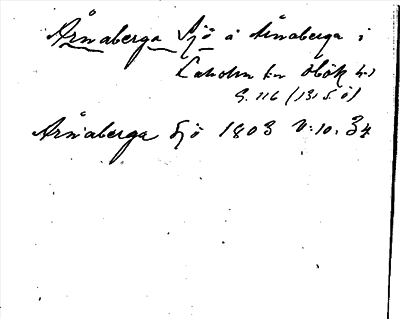 Årnaberga Sjö å Årnaberga i
Laholm s:n Höök h:d
S. 116 (13, 5 ö)
Årnaberga Sjö 1808 V:10: 34